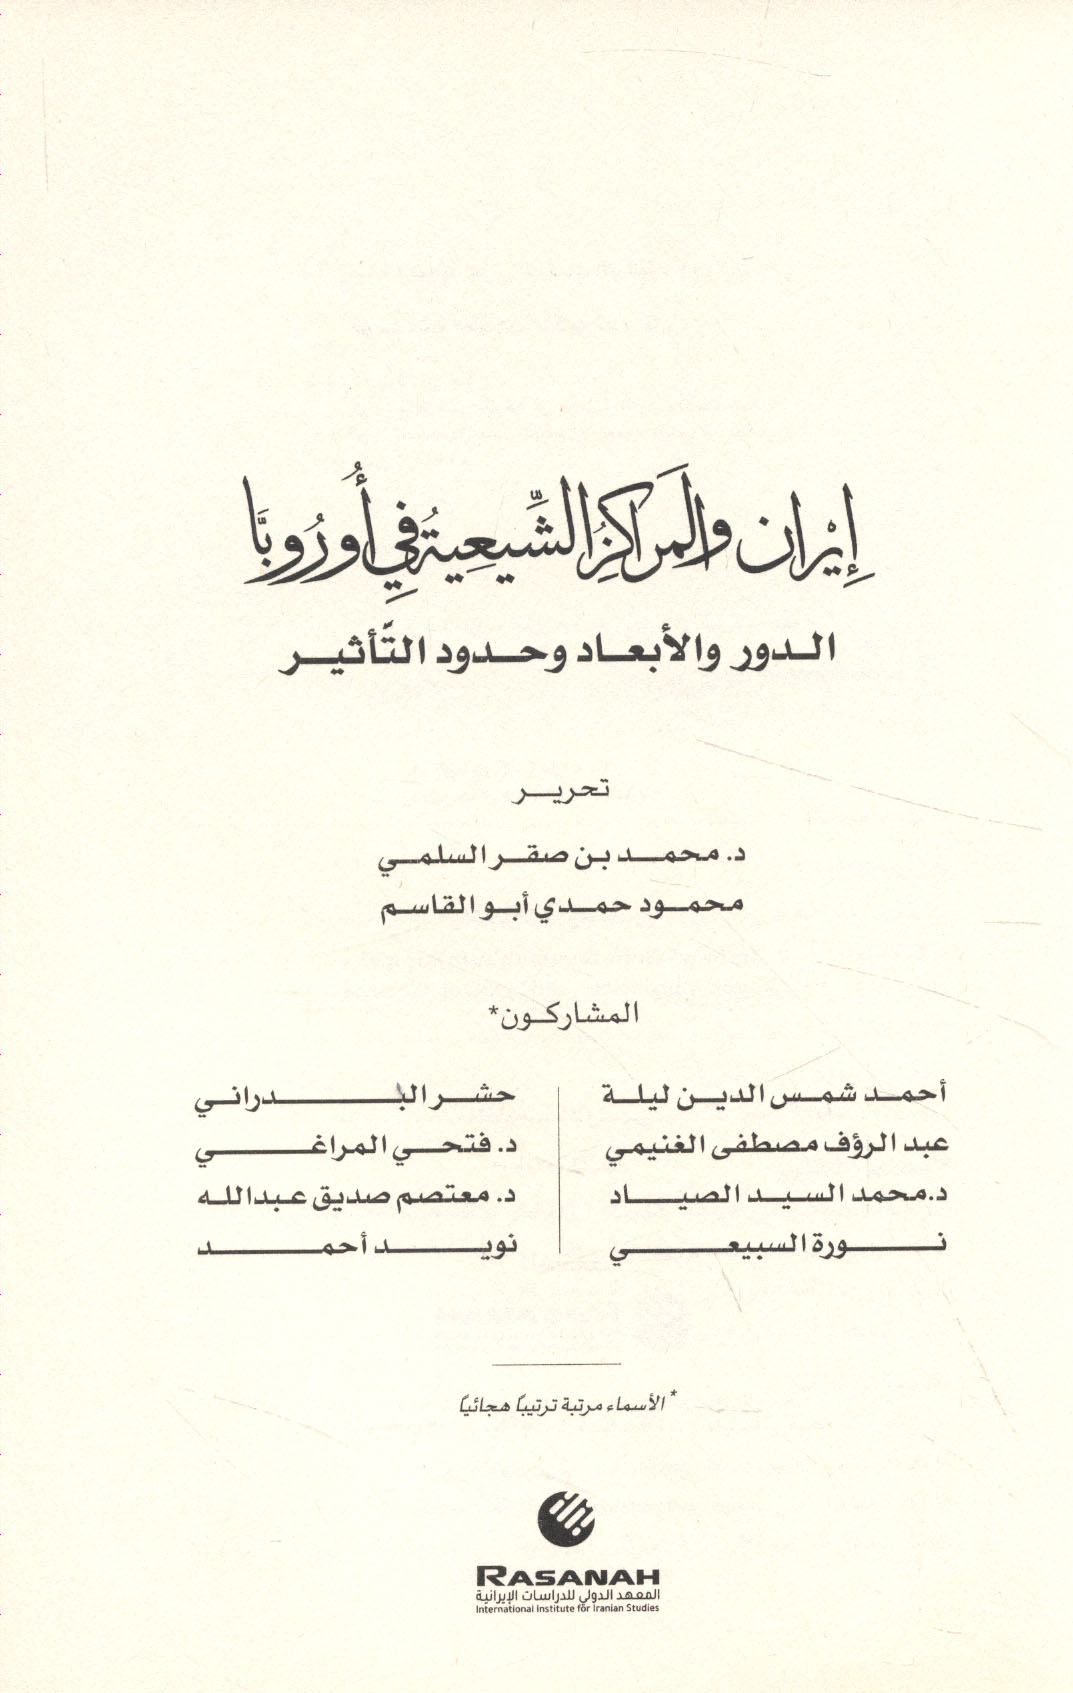 إِيْران والمراكزُ الشِّيعِيةُ في أُورُوبَّا
الدور والأبعاد وحدود التَّأثير
تحرير
د. محمد بن صقر السلمي
محمود حمدي أبو القاسم
المشاركون*
أحمد شمس الدين ليلة
عبد الرؤف مصطفى الغنيمي
د.محمد السيد الصياد
نورة السبيعي
حشر البدراني
د. فتحي المراغي
د. معتصم صديق عبدالله
نويد أحمد
* الأسماء مرتبة ترتيباً هجائياً
RASANAH
المعهد الدولي للدراسات الإيرانية
International Institute for Iranian Studies